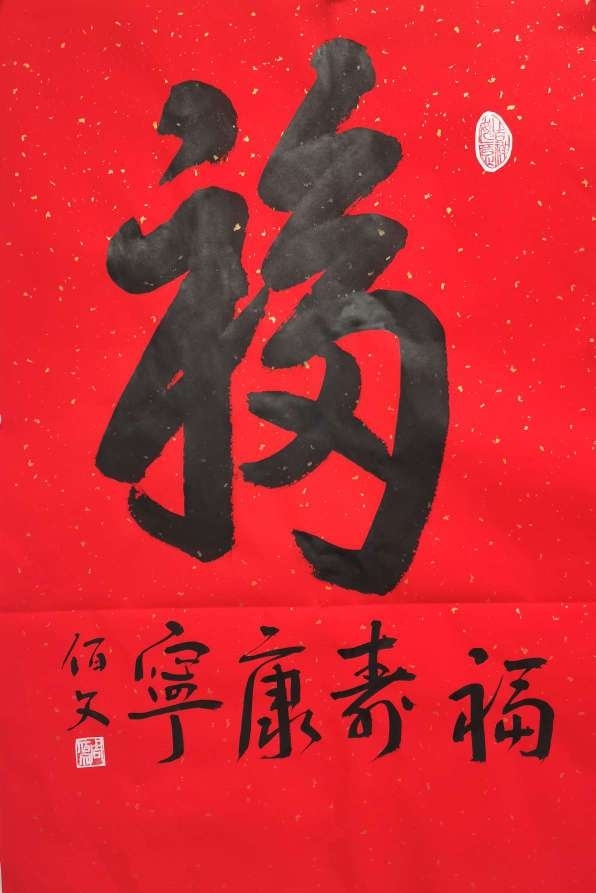 福
福壽康寧
佰文